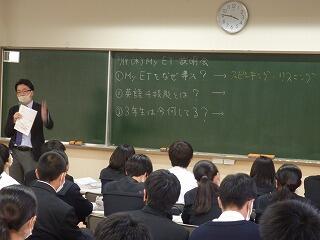 (木) My ET 説明会
① My ETをなぜ導入? → スピーキング・リスニング
② 英語4技能とは? →
③ 3年生は今何してる? →